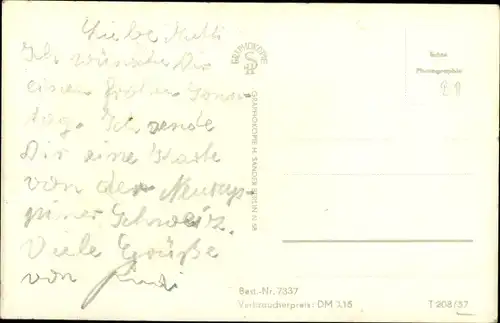 Liebe Mutti
Ich wünsche Dir
einen frohen Sonn-
tag. Ich sende
Dir eine Karte
von der Neurup-
piner Schweiz.
Viele Grüße
von Rudi
GRAPHOKOPIE
GRAPHOKOPIE H. SANDER BERLIN N
Echte
Photographie
Best.-Nr. 7337
Verbraucherpreis: DM
T 208/57